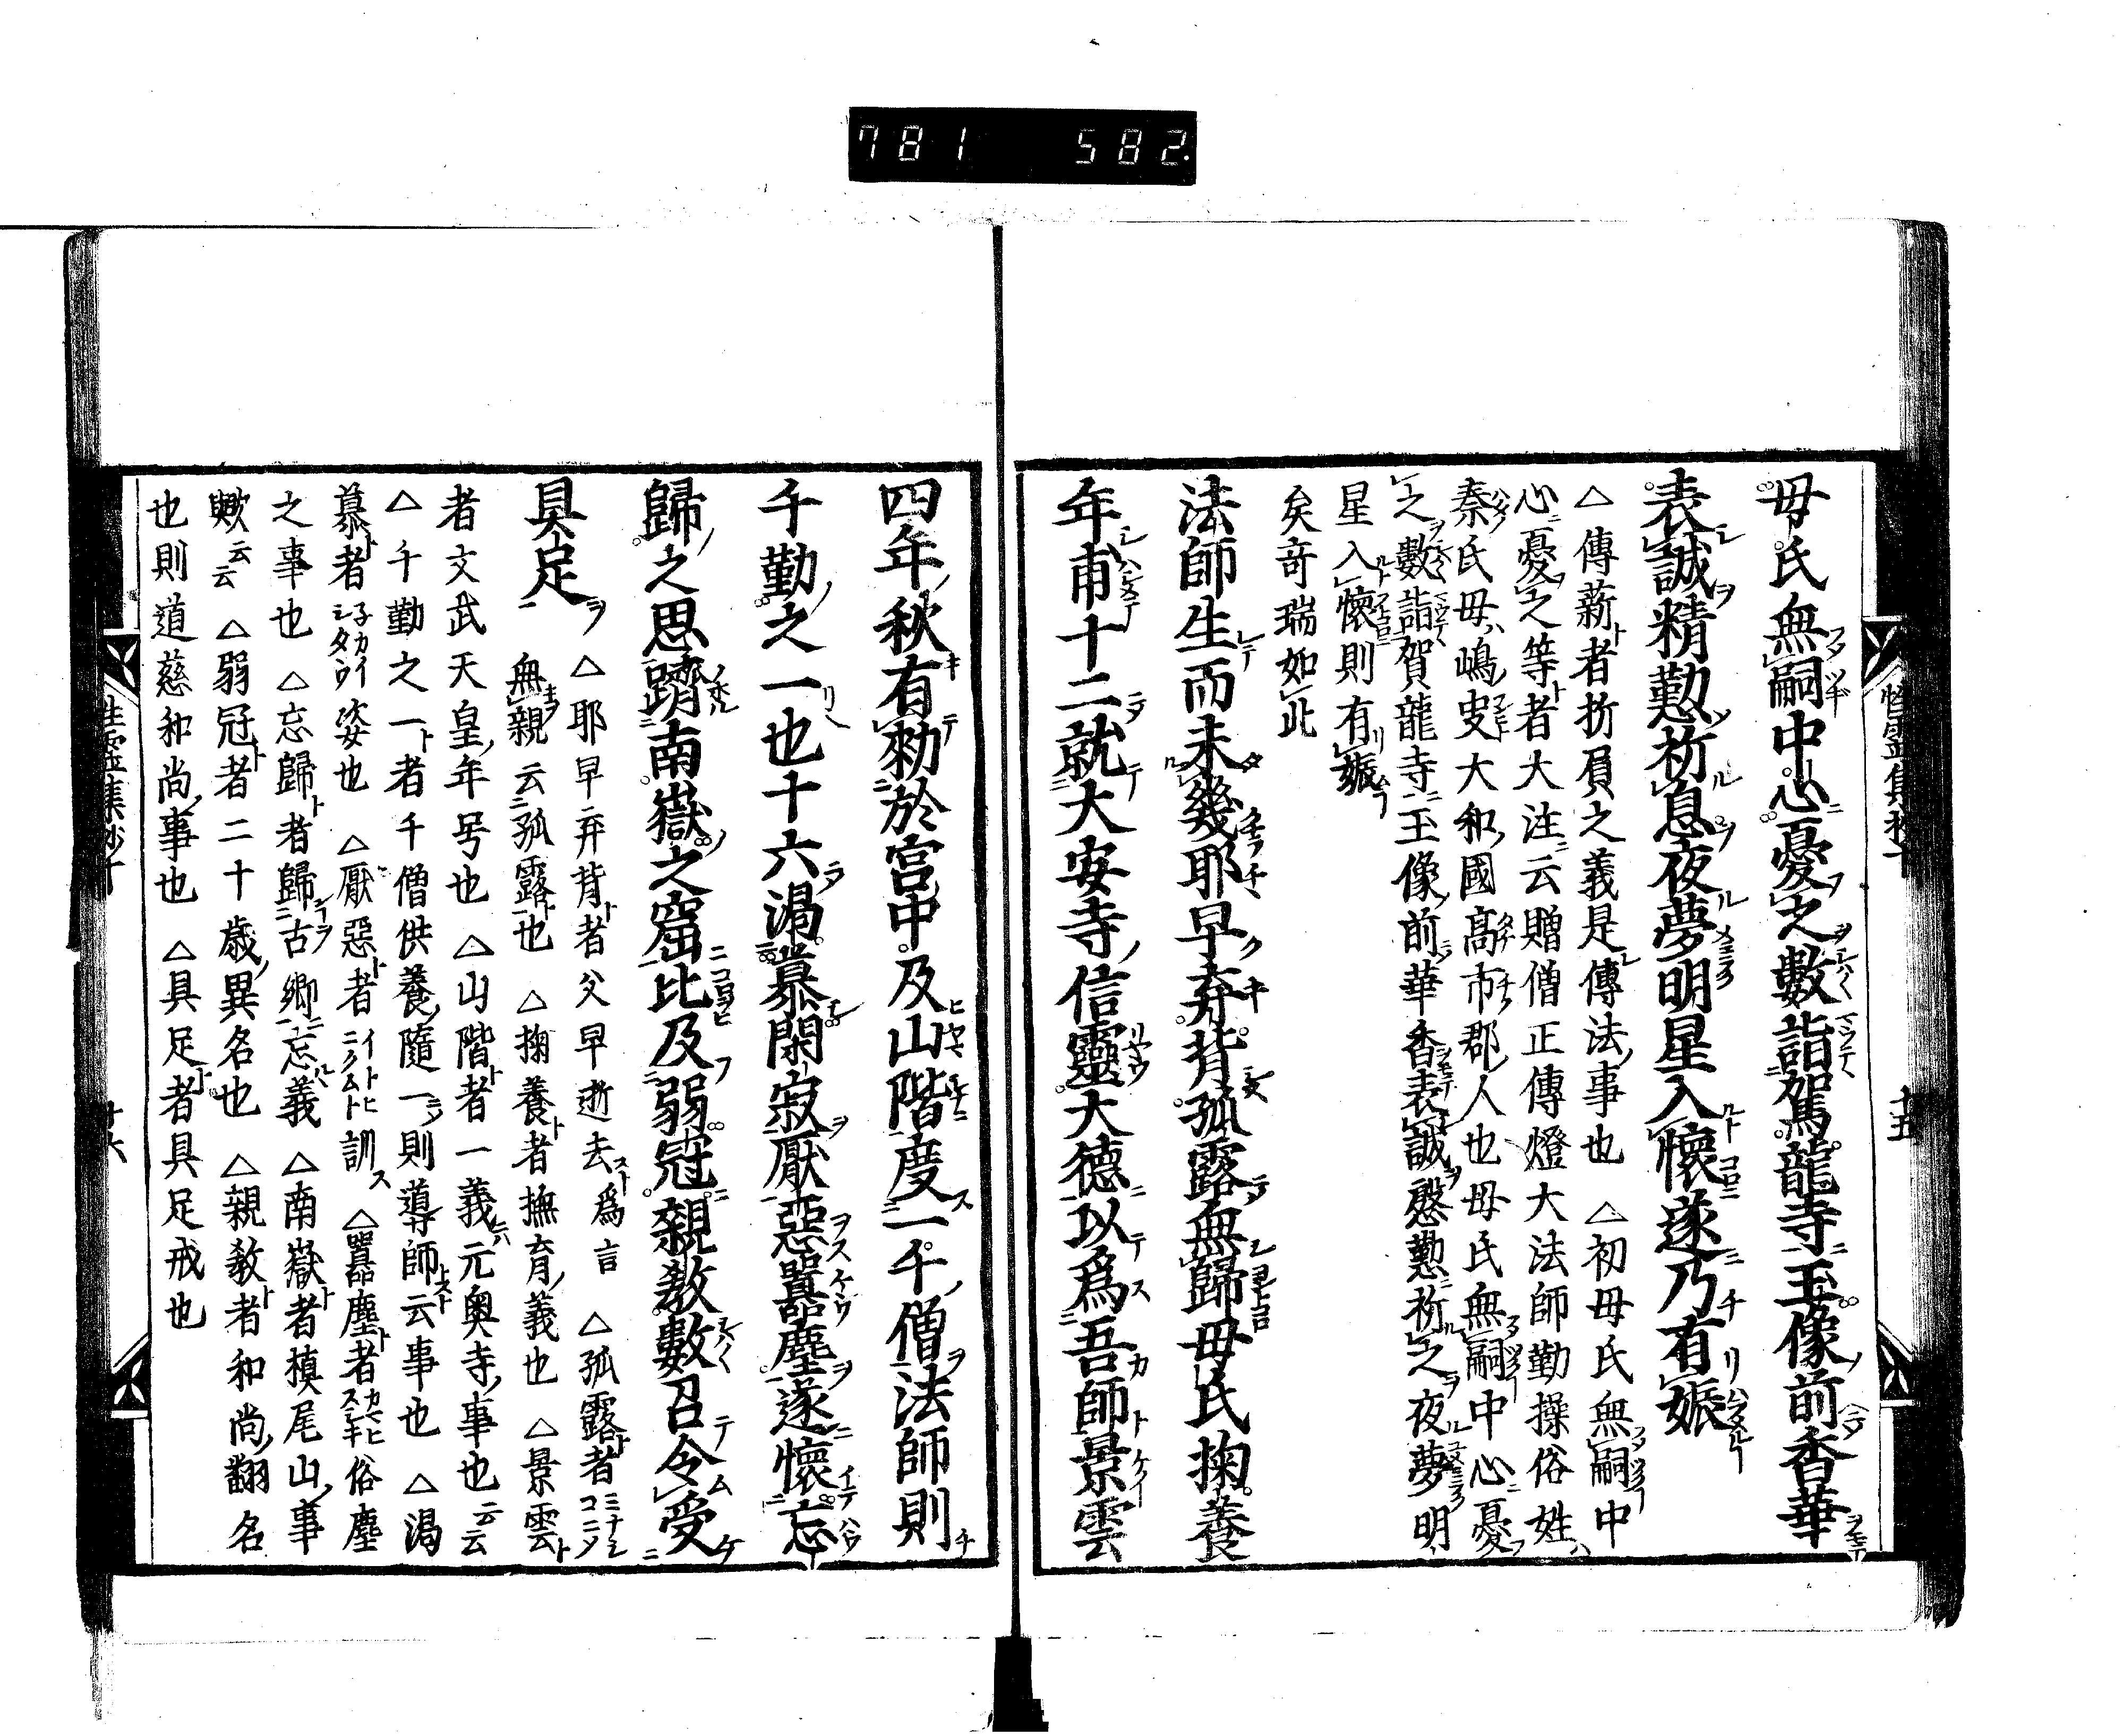 781 582
母氏無嗣中心憂之數詣駕龍寺玉像前香華
表誠精懃祈息夜夢明星入懷遂乃有娠
△傳薪者折屓之義是傳法事也 △初母氏無嗣中
心憂之等者大注云贈僧正傳燈大法師勤操俗姓
秦氏母嶋史大和國高市郡人也母氏無嗣中心憂
之數詣賀龍寺玉像前華香表誠慇懃祈之夜夢明
星入懷則有娠
矣奇瑞如此
法師生而未幾耶早弃背孤露無歸母氏掬養
年甫十二就大安寺信靈大德以爲吾師景雲
四年秋有勑於宮中及山階度一千僧法師則
千勤之一也十六渴慕閑寂厭惡囂塵遂懷忘
歸之思躋南嶽之窟比及弱冠親敎數召令受
具足 △耶早弃背者父早逝去爲言 △孤露者
無親云孤露也 △掬養者撫育義也 △景雲
者文武天皇年号也 △山階者一義元奥寺事也云云
△千勤之一者千僧供養隨一則導師云事也 △渴
慕者 姿也 △厭惡者 訓 △囂塵者 俗塵
之事也 △忘歸者歸古郷忘義 △南嶽者槙尾山事
歟云云 △弱冠者二十歲異名也 △親敎者和尚翻名
也則道慈和尚事也 △具足者具足戒也
十五
性靈集鈔十